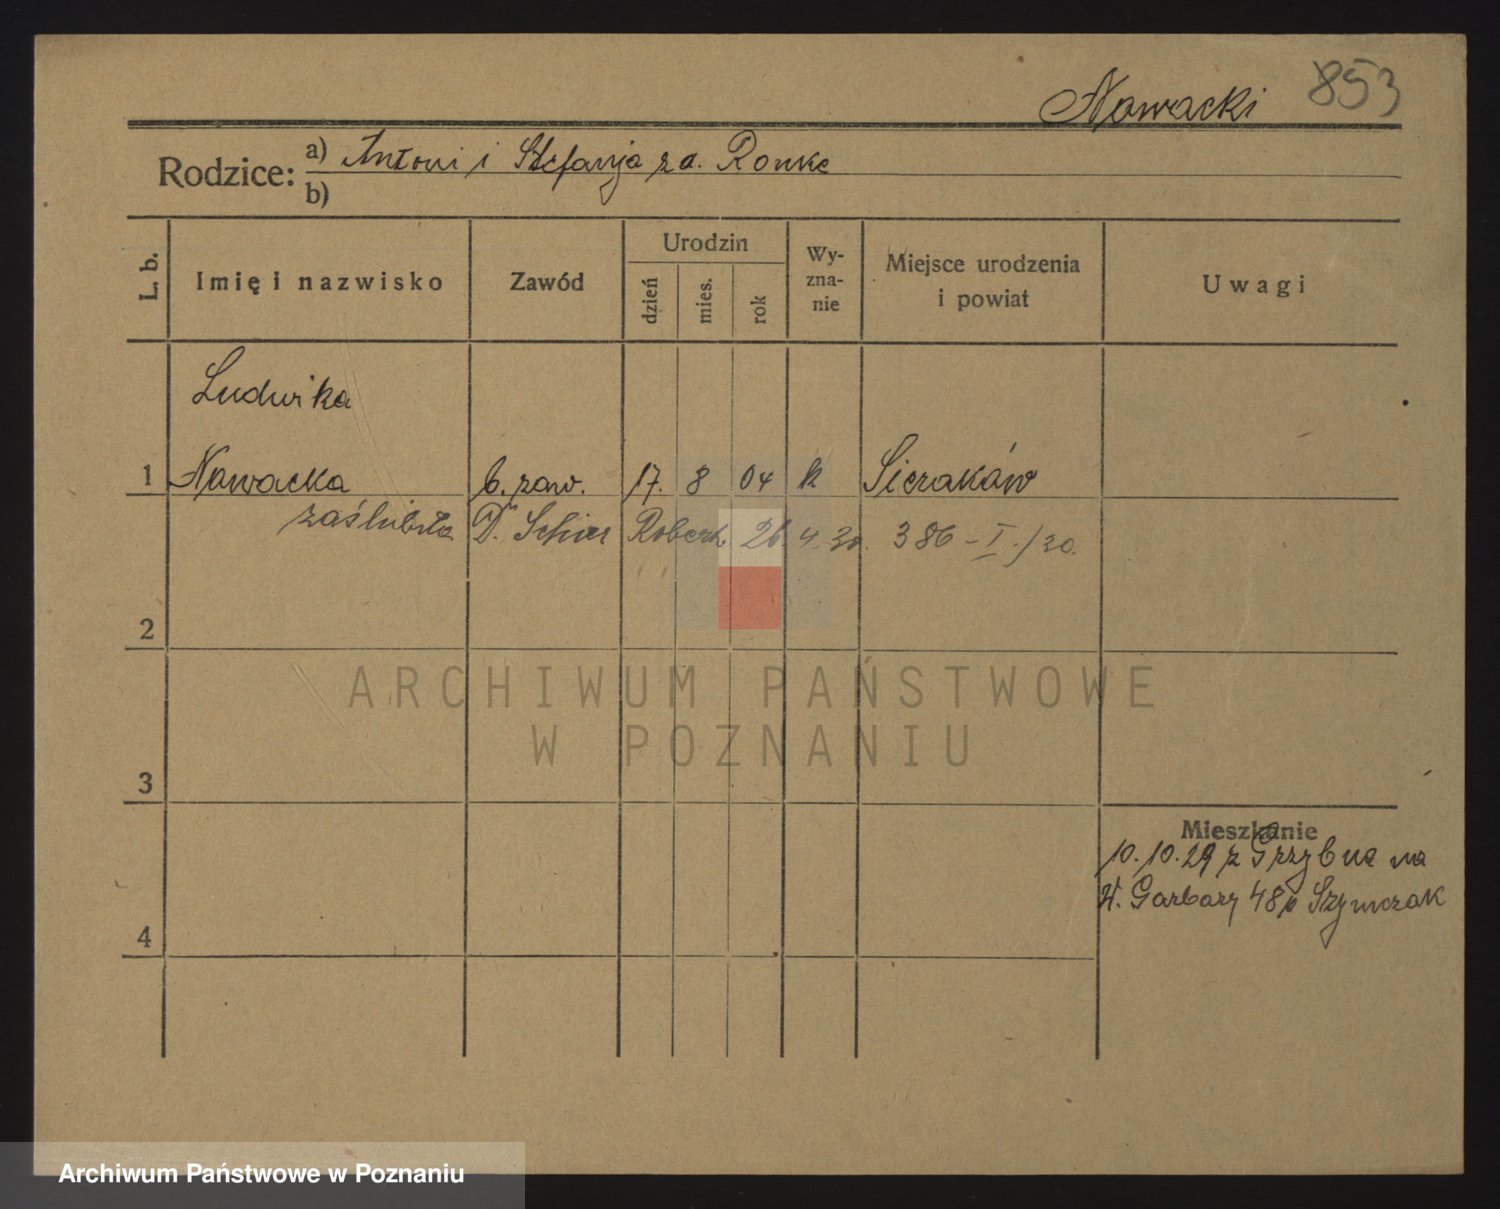 Nawacki 853
Rodzice: a) Antoni i Stefanja z d. Ronke
b)
L. b. Imię i nazwisko Zawód Urodzin dzień mies. rok Wy-zna-nie Miejsce urodzenia i powiat Uwagi
Ludwika
1 Nawacka b. zaw. 17. 8 04 k Sieraków
zaślubiła Robert 26. 4. 30. 386 - I. / 30.
2
ARCHIWUM PAŃSTWOWE
W POZNANIU
3
Mieszkanie
10.10.29 z Grzybna na
W. Garbary 48 Szymczak
4
Archiwum Państwowe w Poznaniu